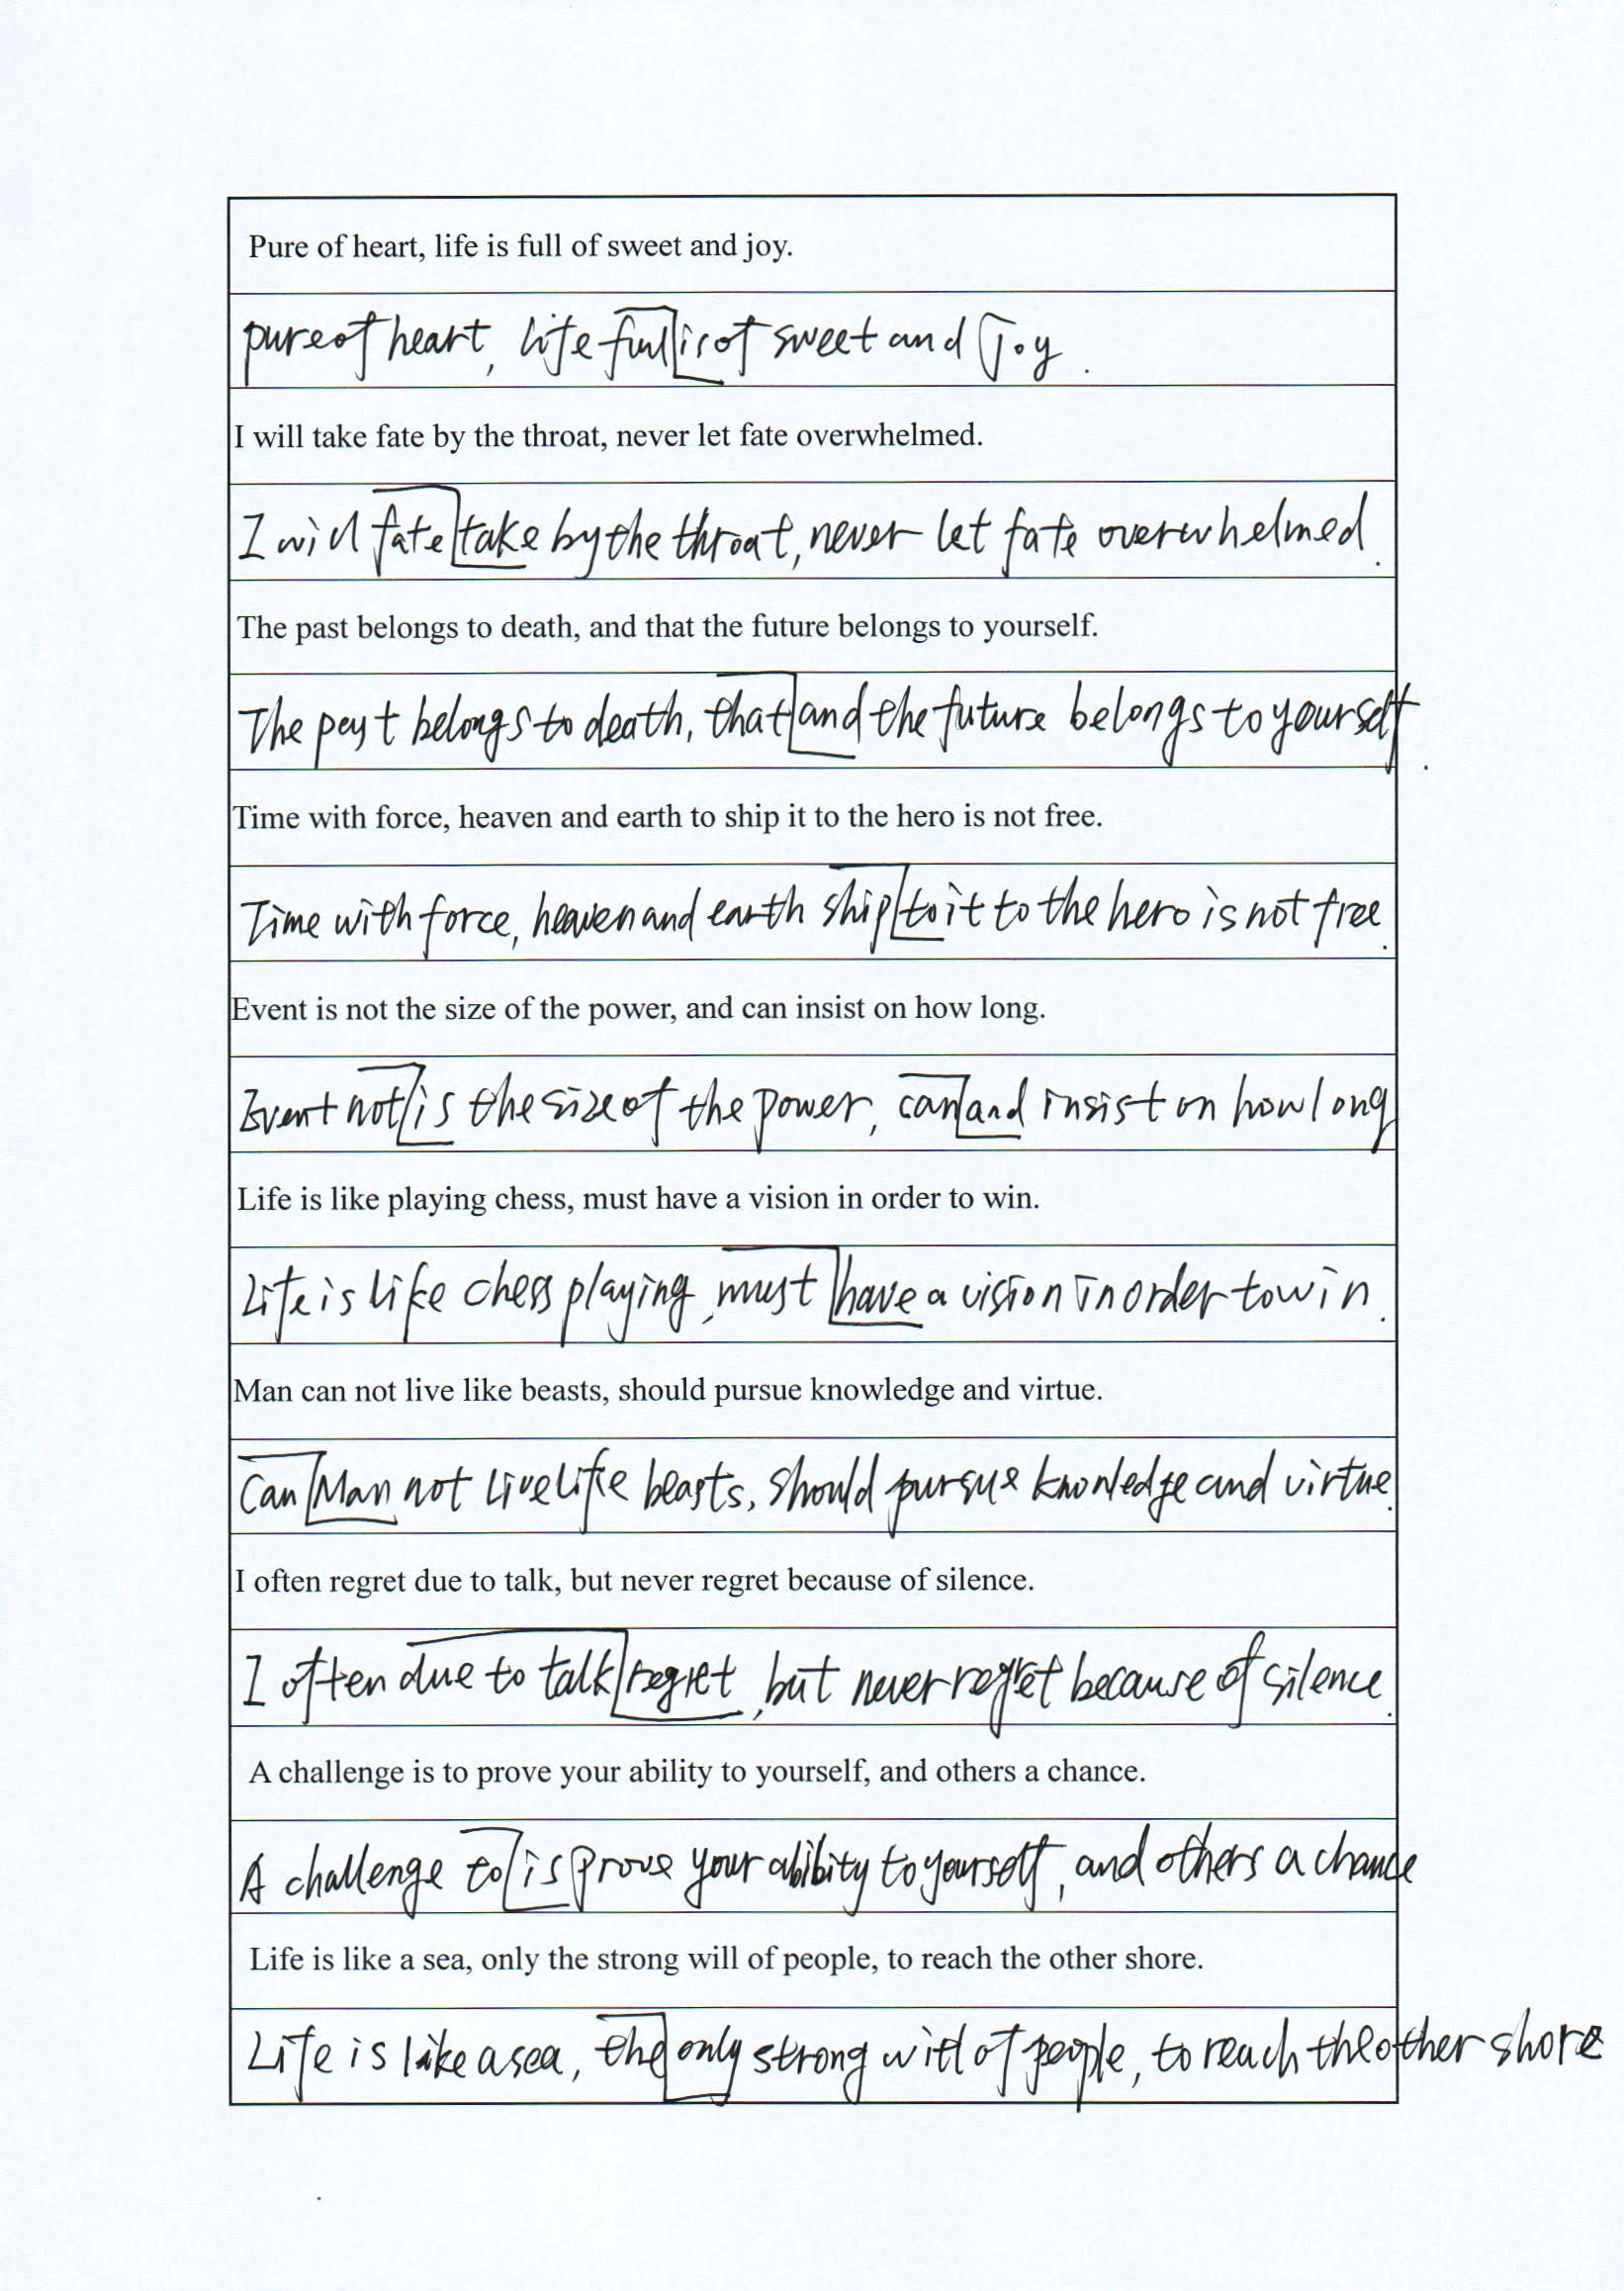 Pure of heart, life is full of sweet and joy.
pure of heart, life full is of sweet and Joy.
I will take fate by the throat, never let fate overwhelmed.
I will fate take by the throat, never let fate overwhelmed.
The past belongs to death, and that the future belongs to yourself.
The past belongs to death, that and the future belongs to yourself.
Time with force, heaven and earth to ship it to the hero is not free.
Time with force, heaven and earth ship to it to the hero is not free.
Event is not the size of the power, and can insist on how long.
Event not is the size of the power, can and insist on how long
Life is like playing chess, must have a vision in order to win.
Life is like chess playing, must have a vision in order to win.
Man can not live like beasts, should pursue knowledge and virtue.
Can Man not live like beasts, should pursue knowledge and virtue.
I often regret due to talk, but never regret because of silence.
I often due to talk regret, but never regret because of silence.
A challenge is to prove your ability to yourself, and others a chance.
A challenge to is prove your ability to yourself, and others a chance
Life is like a sea, only the strong will of people, to reach the other shore.
Life is like a sea, the only strong will of people, to reach the other shore